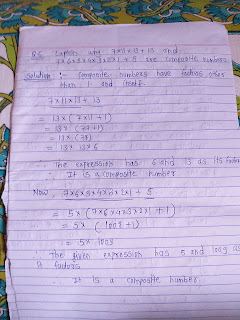 Q.6 Explain why 7x11x13 + 13 and
7x6x5x4x3x2x1 + 5 are composite numbers
Solution :- Composite numbers have factors other
than 1 and itself.
7x11x13 + 13
= 13x (7x11+1)
= 13x (77+1)
= 13x (78)
= 13x 13x6
∴ The expression has 6 and 13 as its factors
∴ It is a composite number
Now, 7x6x5x4x3x2x1 + 5
= 5x (7x6x4x3x2x1 +1)
= 5x (1008+1)
= 5x 1009
∴ The given expression has 5 and 1009 as
it factors
∴ It is a composite number.